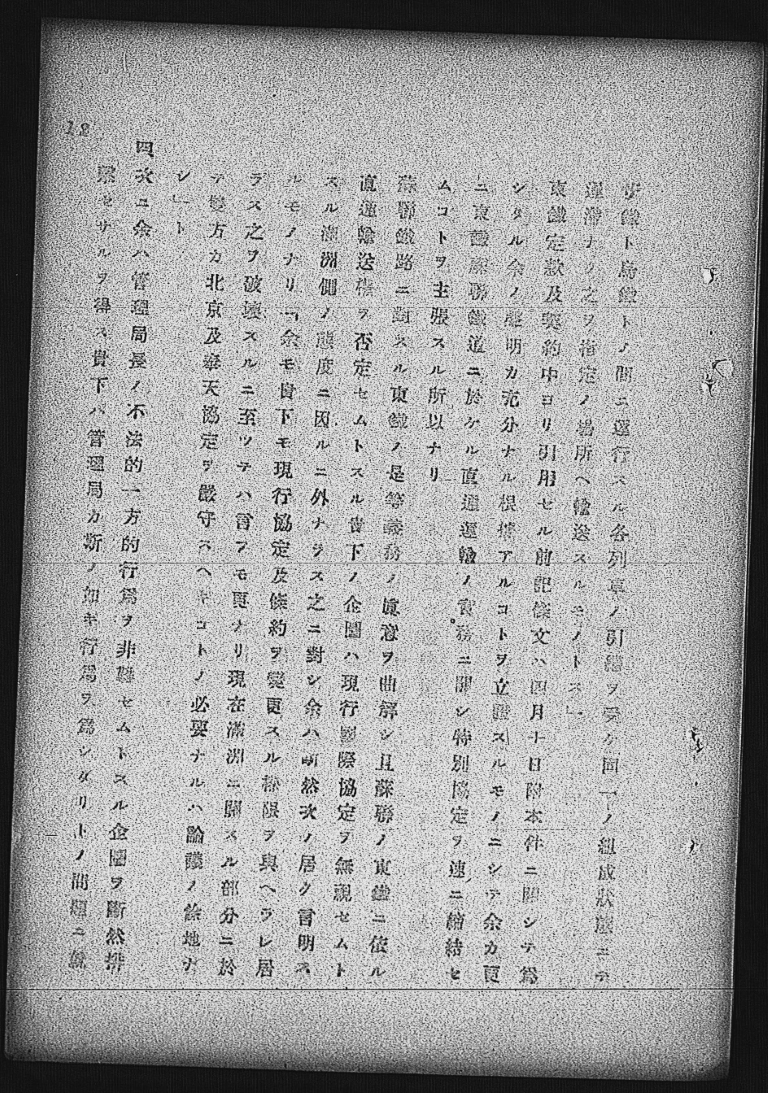 鐵ト烏鐵トノ間ニ運行スル各列車ノ引繼ヲ受ケ同一ノ組成狀態ニテ
遲滯ナク之ヲ指定ノ場所ヘ輸送スルモノトス」
東鐵定款及契約中ヨリ引用セル前記條文ハ四月十日附本件ニ關シテ爲
シタル余ノ聲明カ充分ナル根據アルコトヲ立證スルモノニシテ余カ更
ニ東鐵蘇聯鐵道ニ於ケル直通運輸ノ實務ニ關シ特別協定ヲ速ニ締結セ
ムコトヲ主張スル所以ナリ
蘇聯鐵路ニ對スル東鐵ノ是等義務ノ眞意ヲ曲解シ且蘇聯ノ東鐵ニ依ル
直通輸送權ヲ否定セムトスル貴下ノ企圖ハ現行國際協定ヲ無視セムト
スル滿洲側ノ態度ニ因ルニ外ナラス之ニ對シ余ハ斷然次ノ居ク言明ス
ルモノナリ「余モ貴下モ現行協定及條約ヲ變更スル權限ヲ與ヘラレ居
ラス之ヲ破壞スルニ至ツテハ言フモ更ナリ現在滿洲ニ關スル部分ニ於
テ雙方カ北京及奉天協定ヲ嚴守スヘキコトノ必要ナルハ論議ノ餘地ナ
シ」ト
四次ニ余ハ管理局長ノ不法的一方的行爲ヲ非難セムトスル企圖ヲ斷然排
擊セサルヲ得ス貴下ハ管理局カ斯ノ如キ行爲ヲ爲シタリトノ問題ニ就
12